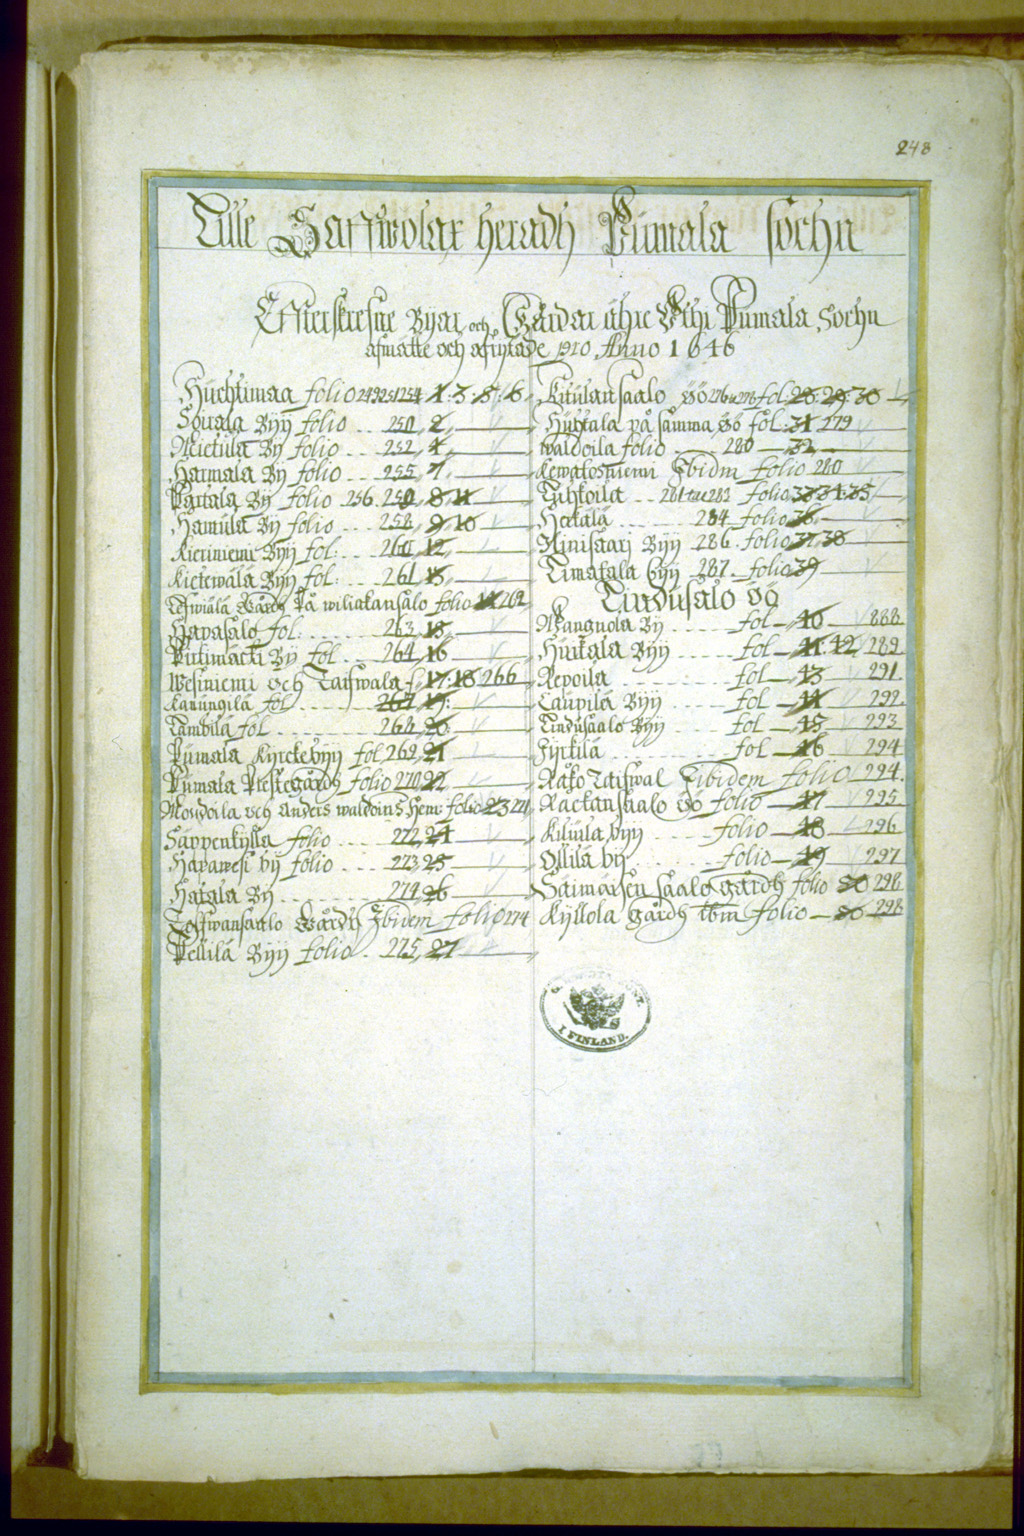 248
Lille Saffwolax heradh Pumala sochn
Effterskrefne Byar och Gårdar ähre Uthi Pumala Sochn
afmätte och afrytade pro Anno 1646
Huchtimaa folio 249 251 254 1:3:5:6
Soirala Byy folio 250 2
Mietula By folio 252 4
Harmala By folio 255 7
Partala By folio 256. 8 11
Hamula By folio 258 9 10
Kieriniemi Byy fol: 260 12
Kietewälä Byy fol: 261 13
Gårdh På wiliakansalo folio 262
Hapasalo fol: 263 15
Pitkimäcki By fol 264 16
Wesiniemi och Taifwala f 17:18 266
Kaningila fol 267 19
Lambila fol 268 20
Pumala Kyrckebyy fol 269 21
Pumala Prestegårdh folio 270 22
Moudoila och Anders waldoins Hem: folio 23 271
Säppenkylla folio 272 24
Haparesi by folio 273 25
Hatala By 274 26
Gårdh Ibidem folio 274
Pellilä Byy folio 275 27
Kitulansaalo öö 276 278 fol 28:29:30
Huhtala på samma öö fol: 31 279
waldoila folio 280 32
Kewatosniemi Ibidm folio 280
Tihtoila 281 283 folio 33 34 35
Heckala 284 folio 36
Ninisaari Byy 286 folio 37 38
Limatala byy 287 folio 39
Lindusalo öö
Mangnola By fol 40 888
Huitala Byy fol 41:42 289
Repoila fol 43 291
Laupila Byy fol 44 292
Lindusaalo Byy fol 45 293
Jyrkilä fol 46 294
Rako Taifwal Ibidem folio 294.
Rackansaalo öö folio 47 295
Kilula byy folio 48 296
Ollila by folio 49 297
Saimaisen saalo gårdh folio 50 298
Kyllola gårdh ibm folio 50 298
I FINLAND.